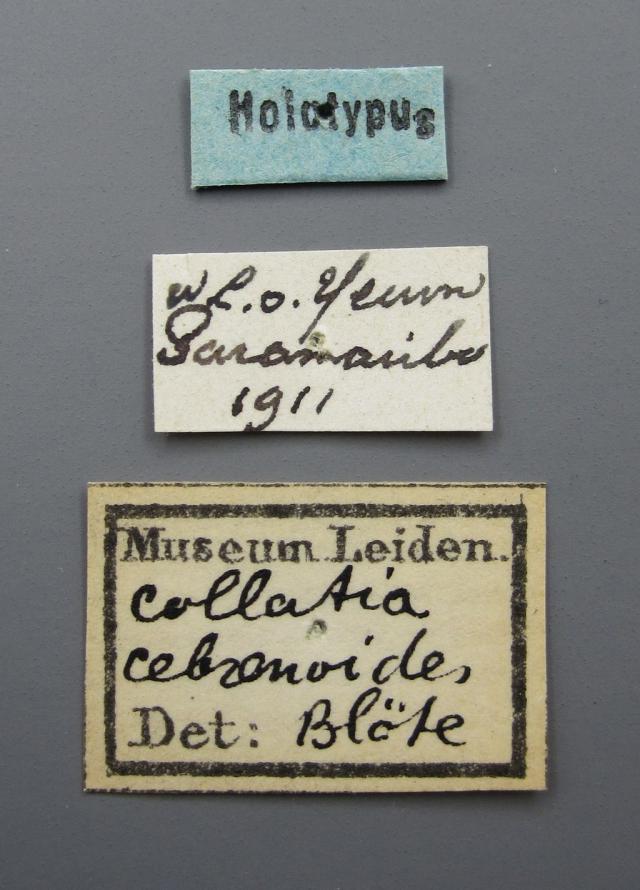 Holotypus
Paramaribo
1911
Museum Leiden.
collatia
cebrenoides
Det: Blöte